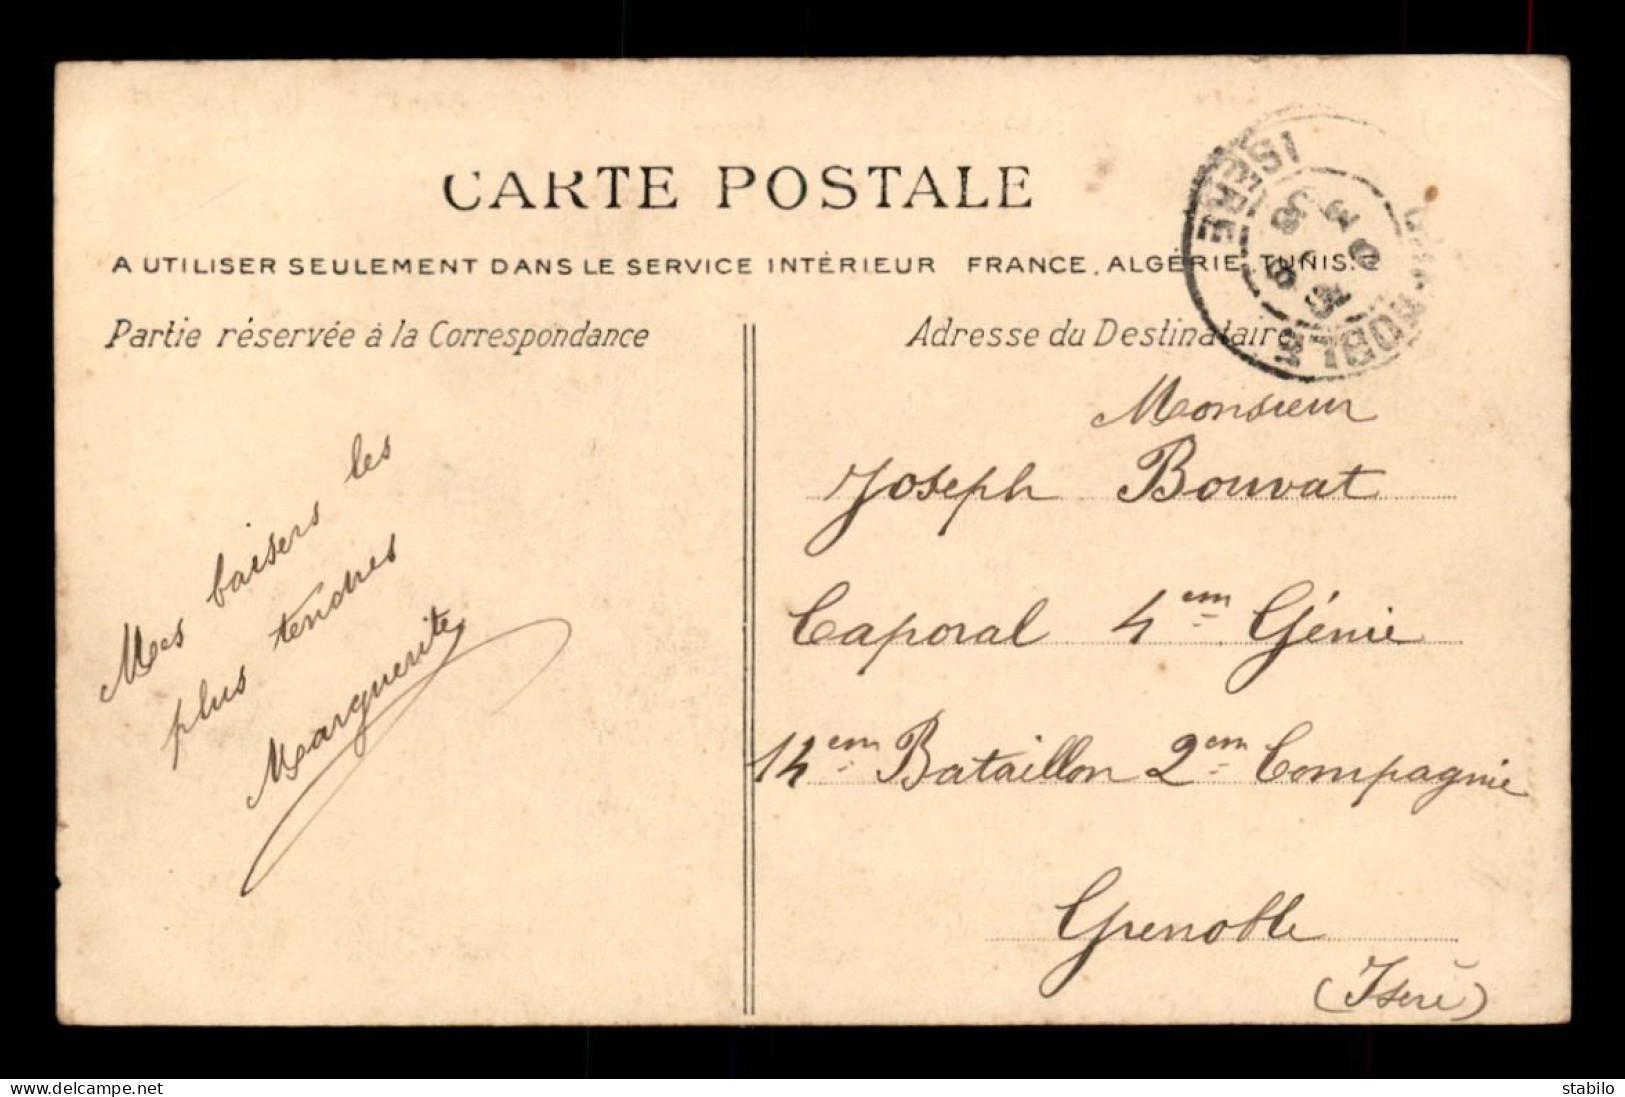 CARTE POSTALE
A UTILISER SEULEMENT DANS LE SERVICE INTÉRIEUR FRANCE, ALGÉRIE, TUNIS.
Partie réservée à la Correspondance
Adresse du Destinataire
GRENOBLE
ISÈRE
Mes baisers les
plus tendres
Marguerite
Monsieur
Joseph Bouvat
Caporal 4em Génie
14em Bataillon 2em Compagnie
Grenoble
(Isère)
delcampe.net
stabilo